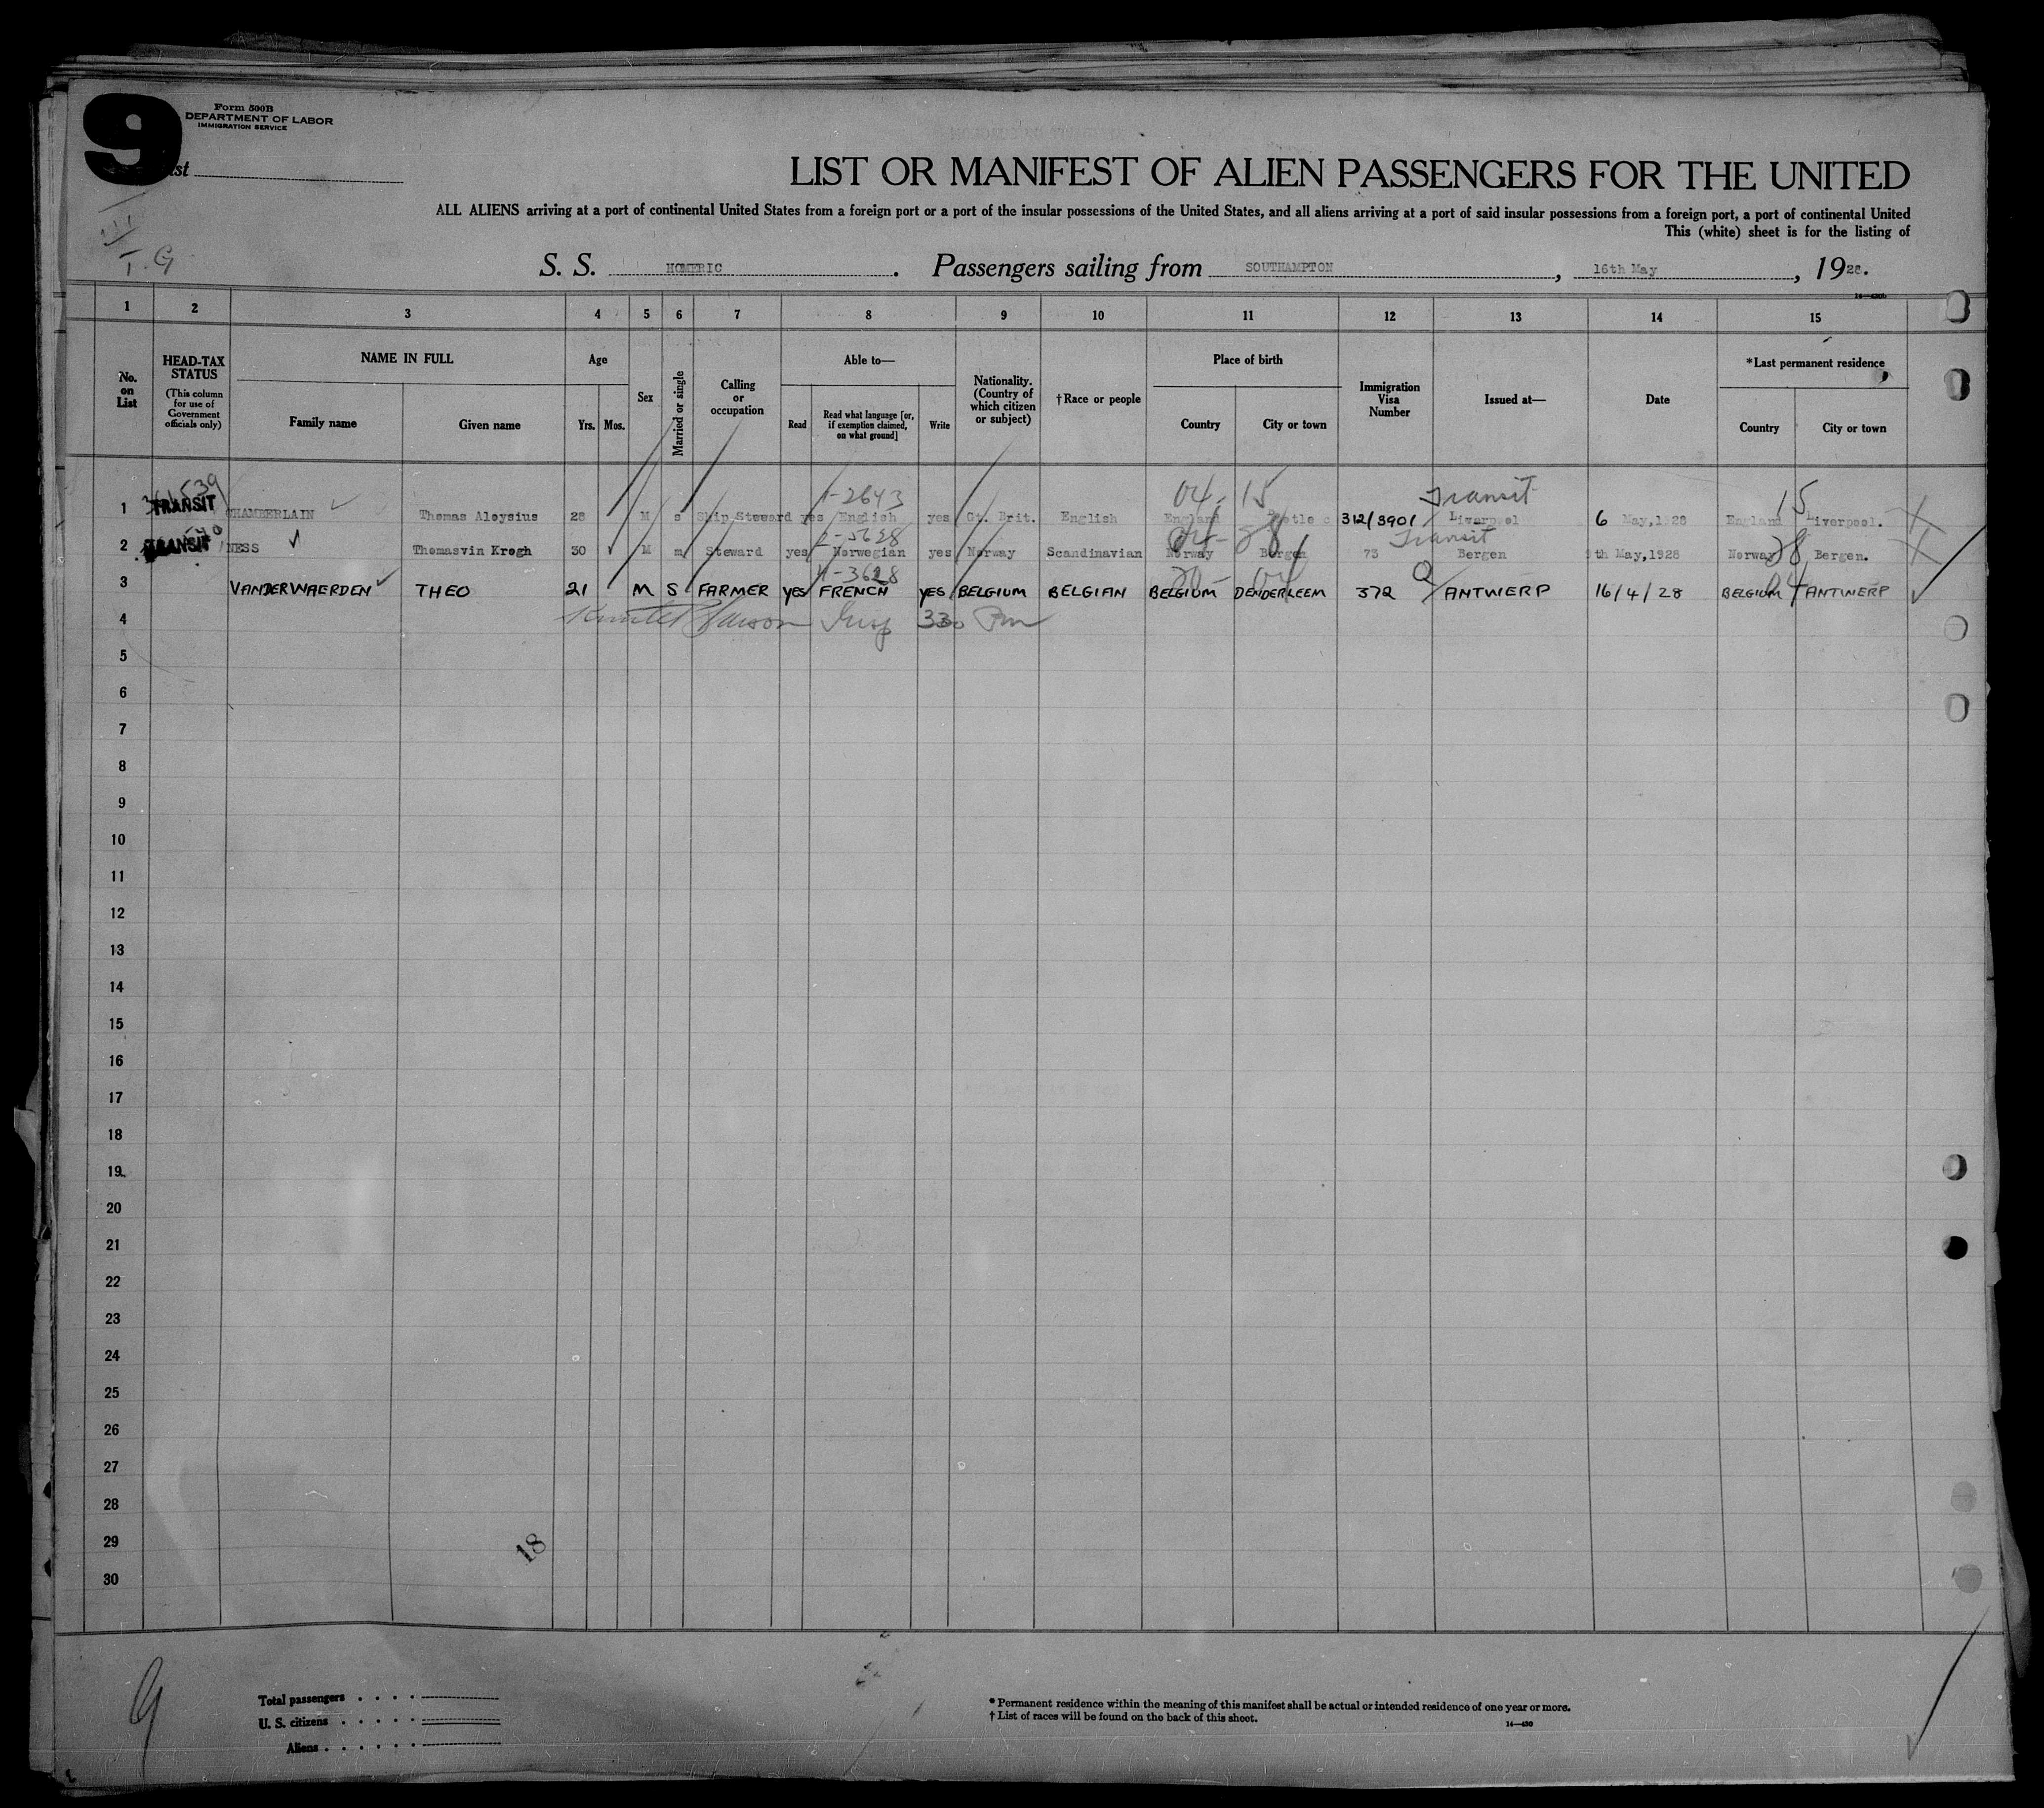 9
Form 500B
DEPARTMENT OF LABOR
IMMIGRATION SERVICE
LIST OR MANIFEST OF ALIEN PASSENGERS FOR THE UNITED
ALL ALIENS arriving at a port of continental United States from a foreign port or a port of the insular possessions of the United States, and all aliens arriving at a port of said insular possessions from a foreign port, a port of continental United
This (white) sheet is for the listing of
S. S. HOMERIC. Passengers sailing from SOUTHAMPTON, 16th May, 1928.
1 2 3 4 5 6 7 8 9 10 11 12 13 14 15
No. on List
HEAD-TAX STATUS (This column for use of Government officials only)
NAME IN FULL Family name Given name
Age Yrs. Mos.
Sex
Married or single
Calling or occupation
Able to— Read Read what language [or, if exemption claimed, on what ground] Write
Nationality. (Country of which citizen or subject)
†Race or people
Place of birth Country City or town
Immigration Visa Number
Issued at—
Date
*Last permanent residence Country City or town
1-2643 04- 15 Transit 15
1 TRANSIT CHAMBERLAIN Thomas Aloysius 28 M s Ship Steward yes English yes Gt. Brit. English England 312/3901 Liverpool 6 May,1928 England Liverpool.
2-5628 28 Transit 28
2 TRANSIT NESS Thomasvin Krogh 30 M m Steward yes Norwegian yes Norway Scandinavian Norway Bergen 73 Bergen 9th May,1928 Norway Bergen.
4-3628 04
3 VANDERWAERDEN THEO 21 M S FARMER yes FRENCH yes BELGIUM BELGIAN BELGIUM DENDERLEEM 372 Q ANTWERP 16/4/28 BELGIUM ANTWERP
4 Insp 330 Pm
5
6
7
8
9
10
11
12
13
14
15
16
17
18
19
20
21
22
23
24
25
26
27
28
29
30
18
9
Total passengers
U. S. citizens
Aliens
* Permanent residence within the meaning of this manifest shall be actual or intended residence of one year or more.
† List of races will be found on the back of this sheet.
14—430